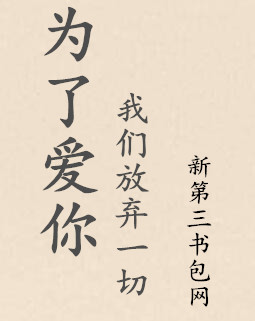 为了爱你
我们放弃一切
新第三书包网